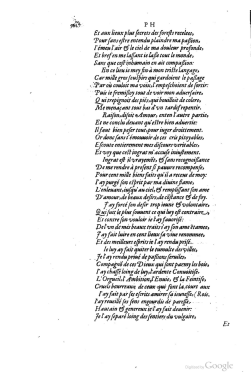 P H
Et aux lieux plus secrets des forests recelees,
Pour sans estre entendu plaindre ma passion,
I'émeus l'air & le ciel de ma douleur profonde:
Et bref en me lassant ie lasse tout le monde,
Sans que cest inhumain en ait compassion:
En ce lieu ie mey fin à mon triste langage,
Car mille gros souspirs qui gardoient le passage
Par où couloit ma voix, l'empeschoient de sortir:
Puis ie fremissoy tout de voir mon aduersaire,
Qui trepignoit des pieds, qui bouilloit de colere,
Me menaçant tout bas d'un tardif repentir.
Raison, disoit Amour, enten l'autre partie,
Et ne conclu deuant qu'estre bien aduertie:
Il faut bien peser tout, pour iuger droitement.
Or donc sans t'émouuoir de ces cris pitoyables,
Escoute entierement mes defenses veritables:
Et voy que cest ingrat m'accuse iniustement.
Ingrat est il vrayement, & sans recognoissance
De me rendre à present si pauure recompense,
Pour cent mille bien faits qu'il a receuz de moy:
I'ay purgé son esprit par ma diuine flame,
L'enleuant iusqu'au ciel, & remplissant son ame
D'amour, de beaux desirs, de constance & de foy.
I'ay forcé son desir trop ieune & volontaire,
Qui suit le plus souuent ce qui luy est contraire,
Et contre son vouloir ie l'ay fauorisé:
De l'un de mes beaux traits i'ay son ame attainte;
I'ay fait luire en cent lieux sa viue renommee,
Et des meilleurs esprits ie l'ay rendu prisé.
Ie luy ay fait quitter le tumulte des villes,
Ie l'ay rendu priué de passions seruiles:
Compagnie de ces Dieux qui sont parmy les bois,
I'ay chassé loing de luy l'ardente Conuoitise,
L'Orgueil, l'Ambition, l'Enuie, & la Feintise,
Cruels bourreaux de ceux qui font la court aux
I'ay fait par ses escrits amirer sa ieunesse: (Rois.
I'ay reueillé ses sens engourdis de paresse,
Hautain & genereux ie l'ay fait deuenir:
Ie l'ay separé loing des sentiers du vulgaire,
Et
Digitized by Google